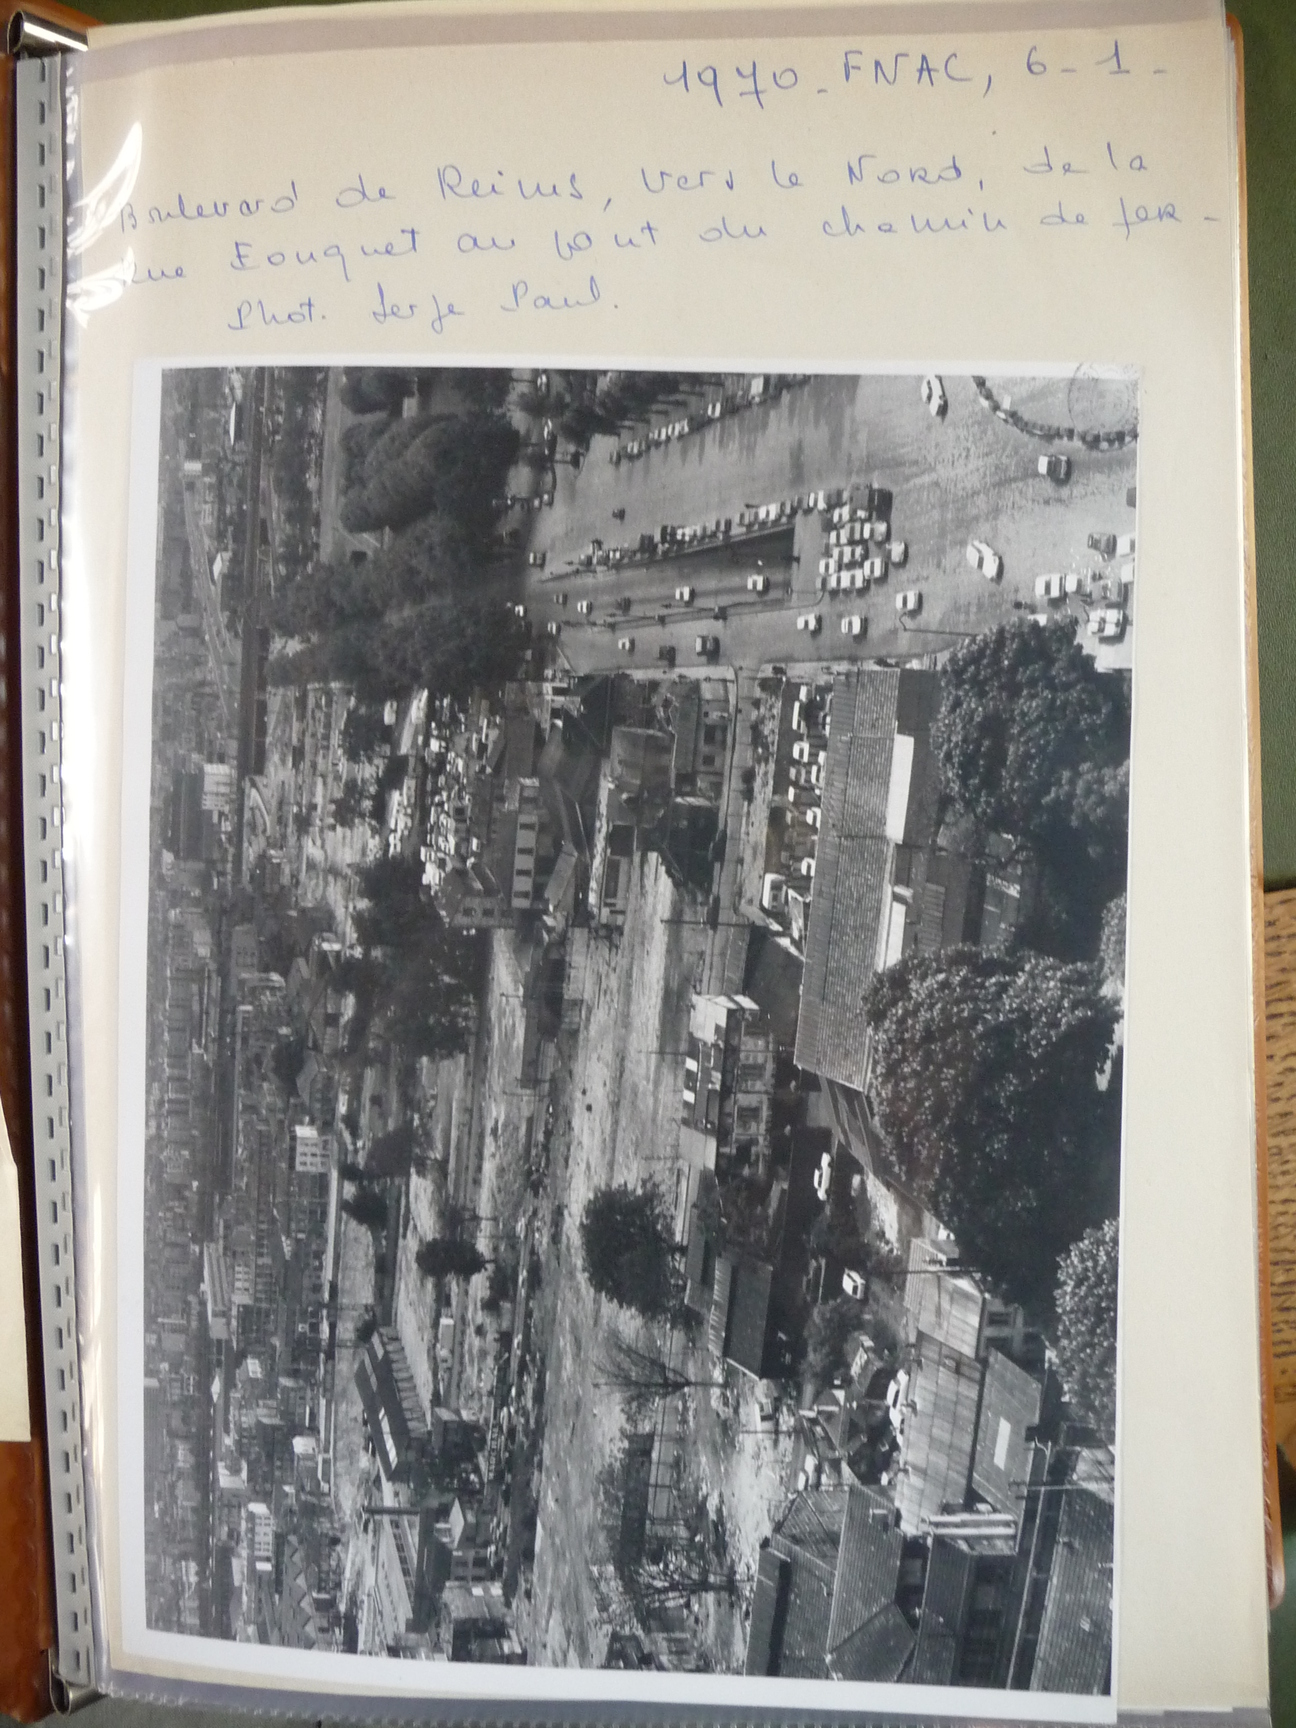 1970 - FNAC, 6 - 1 -
Boulevard de Reims, vers le Nord, de la
rue Fouquet au pont du chemin de fer -
Phot. Serge Paul.